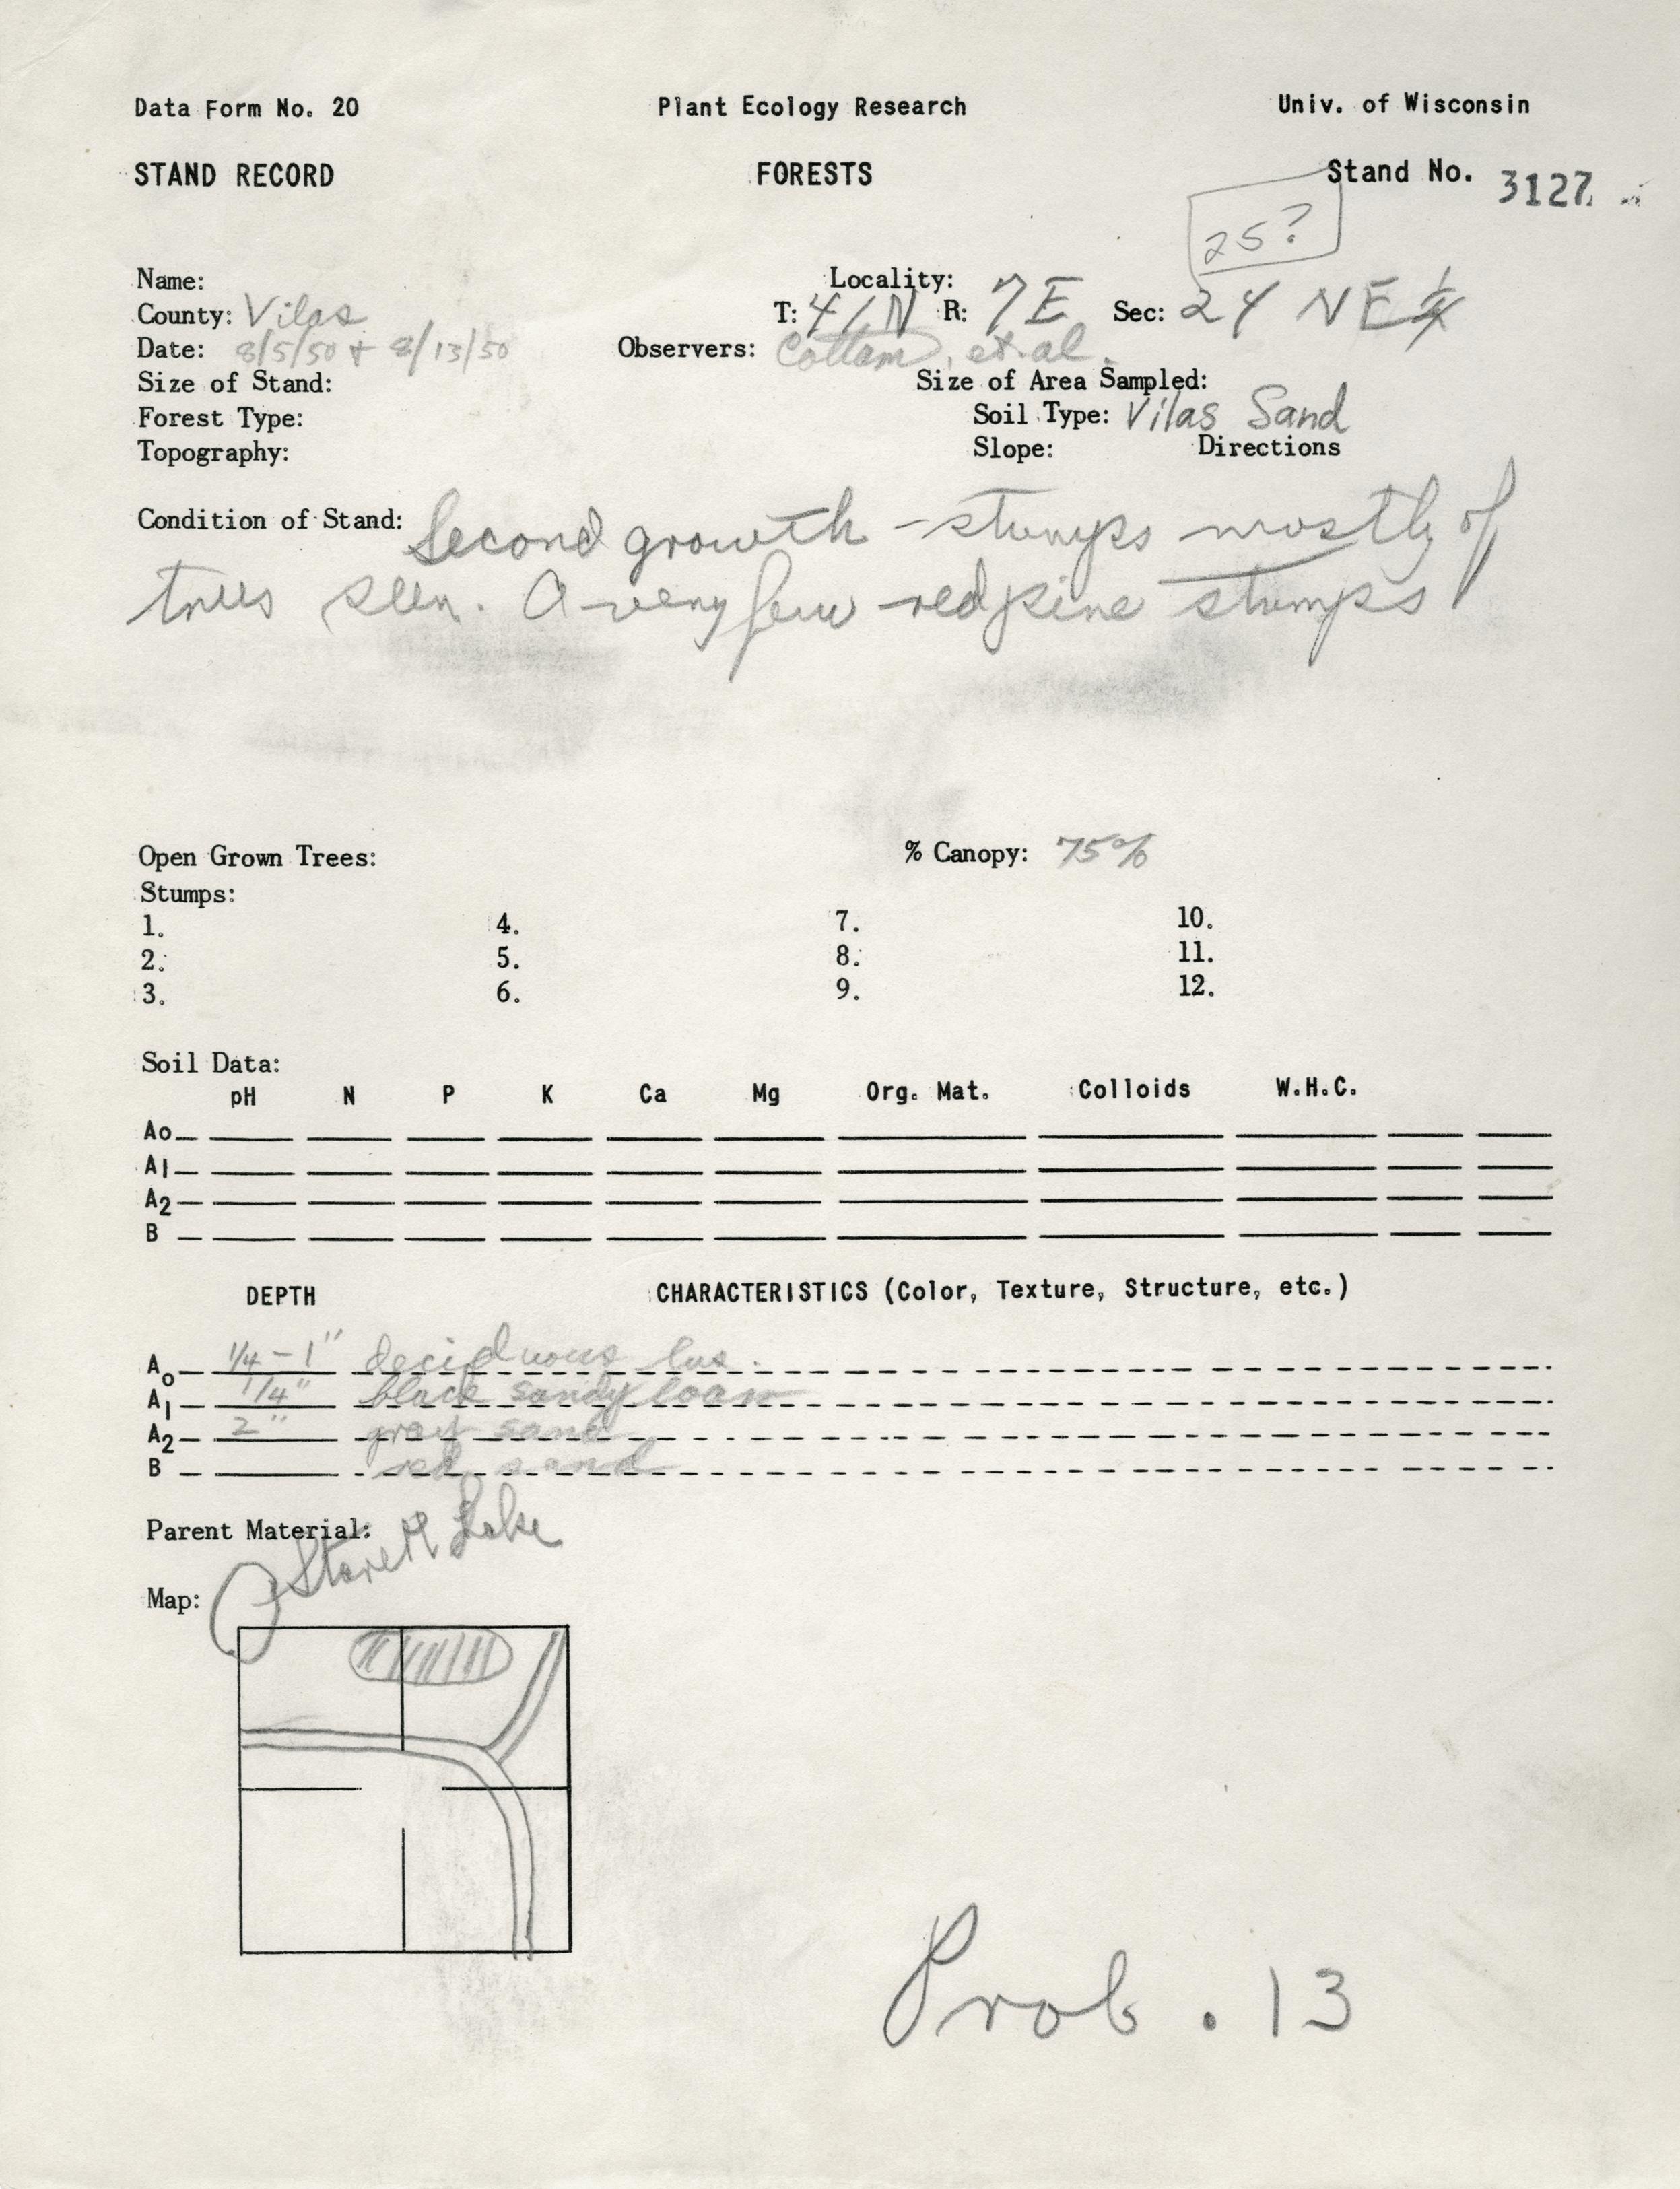 Data Form No. 20 Plant Ecology Research Univ. of Wisconsin
STAND RECORD FORESTS Stand No. 3127
25?
Name: Locality:
County: Vilas T: 41N R: 7E Sec: 24 NE 1/4
Date: 8/5/50 + 8/13/50 Observers: Cottam, et al.
Size of Stand: Size of Area Sampled:
Forest Type: Soil Type: Vilas Sand
Topography: Slope: Directions
Condition of Stand: Second growth - stumps mostly of
trees seen. A very few red pine stumps
Open Grown Trees: % Canopy: 75%
Stumps:
1. 4. 7. 10.
2. 5. 8. 11.
3. 6. 9. 12.
Soil Data:
pH N P K Ca Mg Org. Mat. Colloids W.H.C.
Ao
A1
A2
B
DEPTH CHARACTERISTICS (Color, Texture, Structure, etc.)
Ao 1/4 - 1" deciduous lvs.
A1 1/4" black sandy loam
A2 2" gray sand
B red sand
Parent Material:
Lake
Map:
Prob. 13